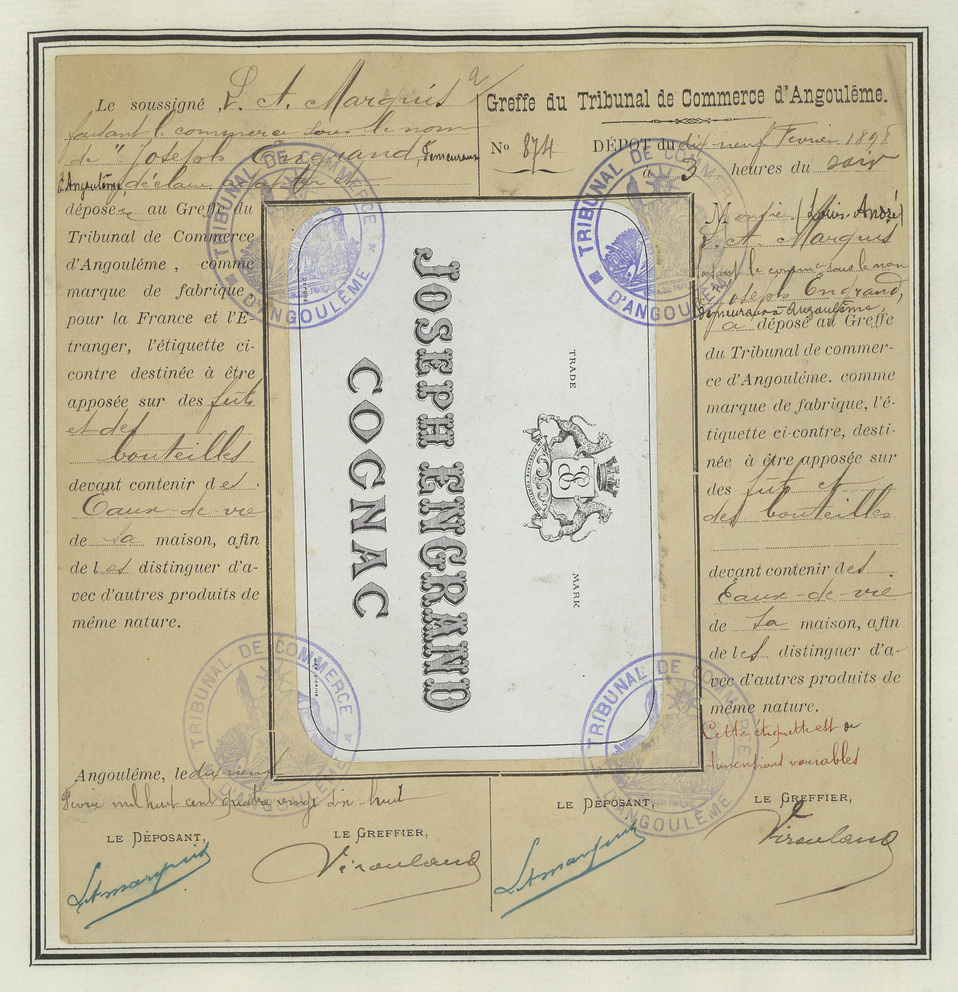 Le soussigné, L. A. Marquis
faisant le commerce sous le nom
de "Joseph Engrand, demeurant
à Angoulême, déclare
dépose au Greffe du
Tribunal de Commerce
d'Angoulême, comme
marque de fabrique
pour la France et l'É-
tranger, l'étiquette ci-
contre destinée à être
apposée sur des fûts
et des
bouteilles
devant contenir des
Eaux-de-vie
de sa maison, afin
de les distinguer d'a-
vec d'autres produits de
même nature.
Angoulême, le dix neuf
Février mil huit cent quatre vingt dix huit
LE DÉPOSANT,
LE GREFFIER,
LA Marquis
Virouland
Greffe du Tribunal de Commerce d'Angoulême.
No 874
DÉPOT du dix neuf Février 1898
à 3 heures du soir
Monsieur (Louis-André)
L. A. Marquis
faisant le commerce sous le nom
"Joseph Engrand,
demeurant à Angoulême
a déposé au Greffe
du Tribunal de commer-
ce d'Angoulême. comme
marque de fabrique, l'é-
tiquette ci-contre, desti-
née à être apposée sur
des fûts et
des bouteilles
devant contenir des
Eaux-de-vie
de sa maison, afin
de les distinguer d'a-
vec d'autres produits de
même nature.
Cette étiquette est de
dimensions variables
LE DÉPOSANT,
LE GREFFIER,
LA Marquis
Virouland
TRADE
MARK
JOSEPH ENGRAND
COGNAC
TRIBUNAL DE COMMERCE
D'ANGOULÊME
TRIBUNAL DE COMMERCE
D'ANGOULÊME
TRIBUNAL DE COMMERCE
D'ANGOULÊME
TRIBUNAL DE COMMERCE
D'ANGOULÊME